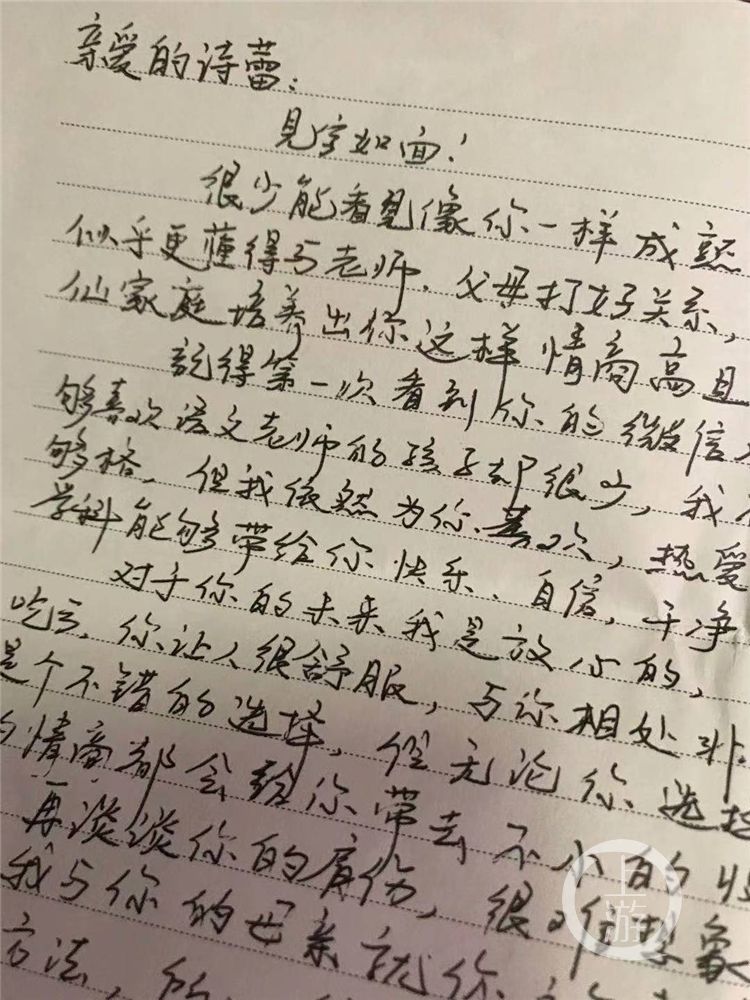 亲爱的诗蕾：
見字如面！
很少能看見像你一样成熟
似乎更懂得与老师、父母打好关系，
仙家庭培养出你这样情商高且
記得第一次看到你的微信
够喜欢语文老师的孩子却很少，我
够格，但我依然为你喜欢，热爱
学科能够带给你快乐、自信，干净
对于你的未来我是放心的，
你让人很舒服，与你相处非
是个不错的选择，但无论你选择
的情商都会给你带去不小的收
再谈谈你的肩伤，很难想象
我与你的母亲就你
方法，所
上游